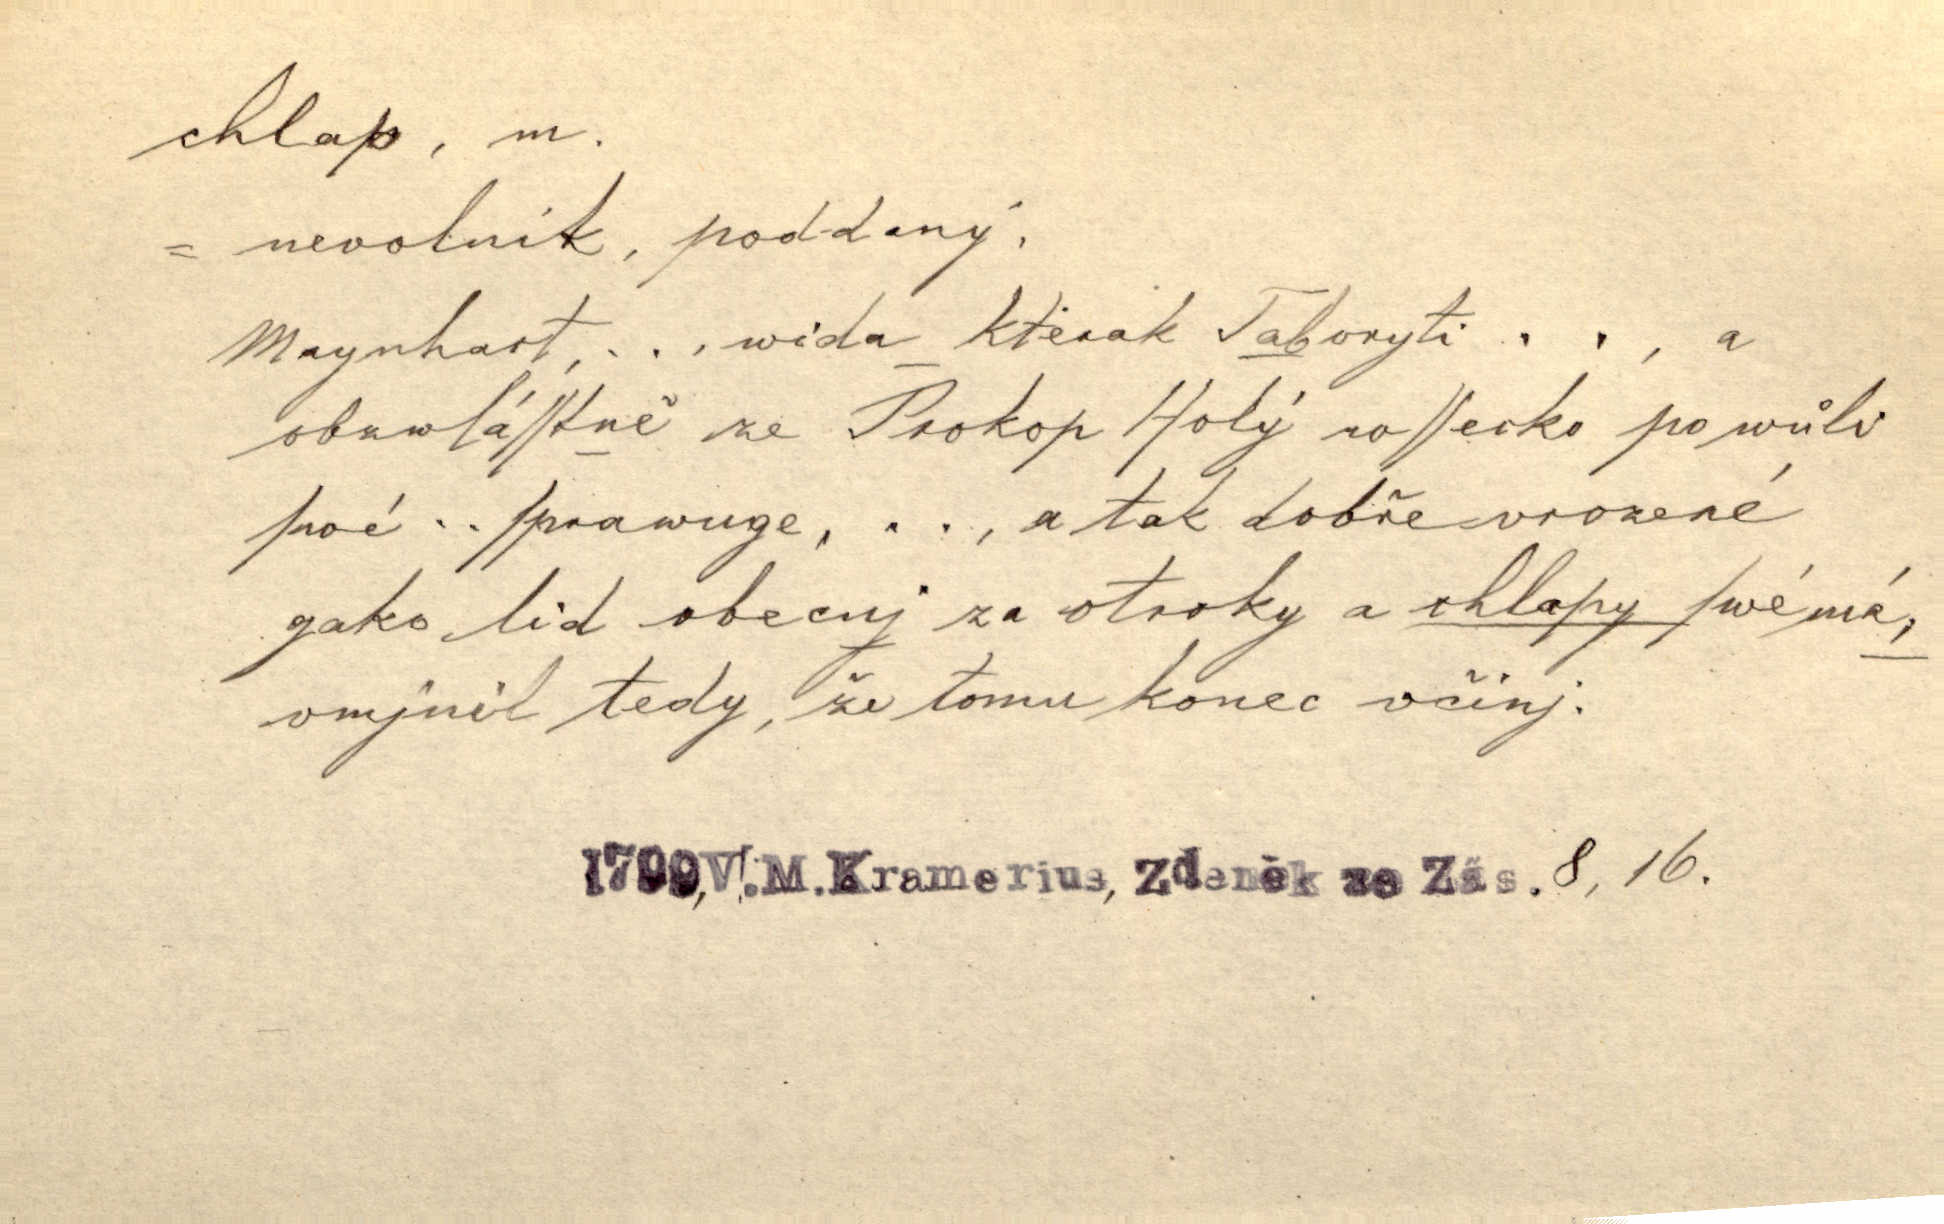 chlap, m.
= nevolník, poddaný.
Maynhart, . . , wida kterak Taboryti . . , a
obzwláſſtně že Prokop Holý voſſecko po wůli
ſwé .. ſprawuge, . . . , a tak dobře vrozené
gako lid obecnj za otroky a chlapy ſwé má,
vmjnil tedy, že tomu konec včinj.
1799, V. M. Kramerius, Zdeněk ze Zás. 8, 16.